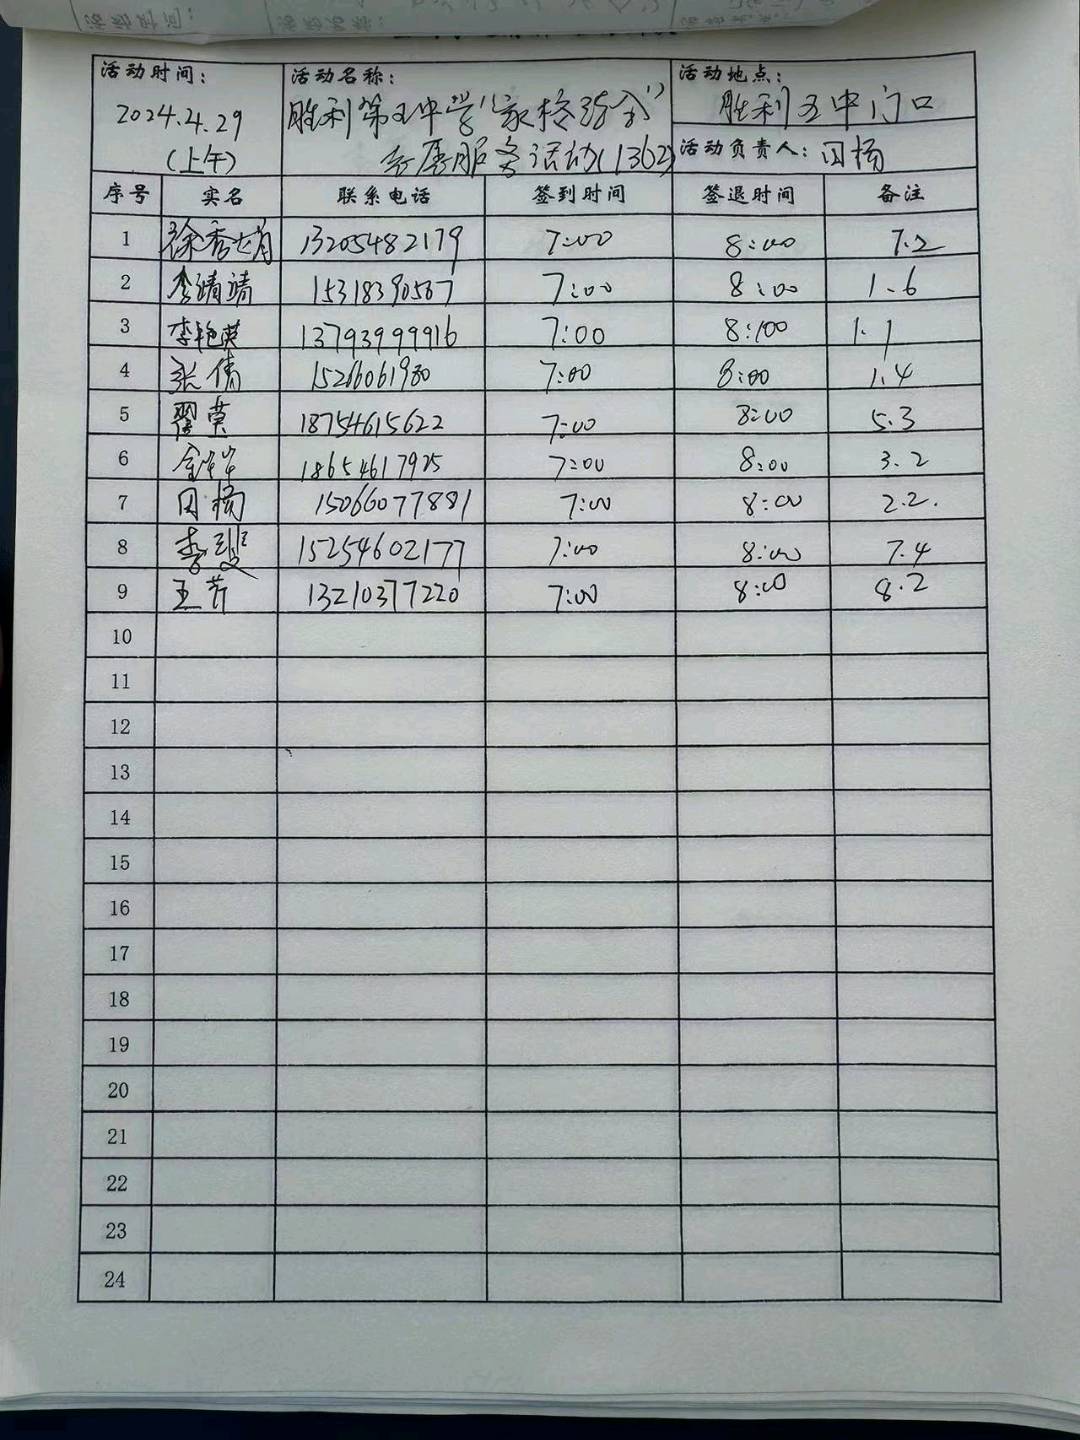 活动时间：
2024.4.29
(上午)
活动名称：
胜利第五中学"家校
服务活动(1362)
活动地点：
胜利五中门口
活动负责人：田杨
序号 实名 联系电话 签到时间 签退时间 备注
1 徐秀娟 13205482179 7:00 8:00 7.2
2 李靖靖 15318390567 7:00 8:00 1.6
3 李艳英 13793999916 7:00 8:00 1.1
4 张倩 15266061980 7:00 8:00 1.4
5 翟荣 18754615622 7:00 8:00 5.3
6 18654617925 7:00 8:00 3.2
7 田杨 15066077881 7:00 8:00 2.2.
8 李 15254602177 7:00 8:00 7.4
9 王芹 13210377220 7:00 8:00 8.2
10
11
12
13
14
15
16
17
18
19
20
21
22
23
24